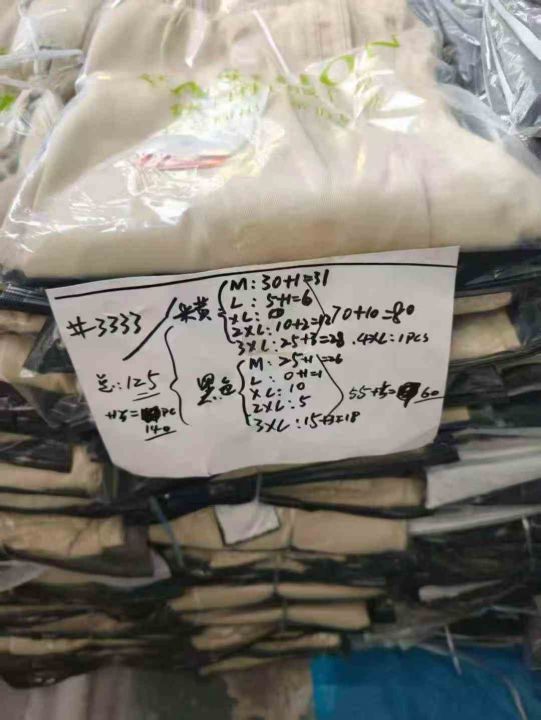 #3333
总: 125
+15=
PC
140
米黄
M: 30+1=31
L: 5+1=6
XL: 0
2XL: 10+2=12
3XL: 25+3=28 . 4XL: 1PCS
70+10=80
黑色
M: 25+1=26
L: 0+1=1
XL: 10
2XL: 5
3XL: 15+3=18
55+5=
60